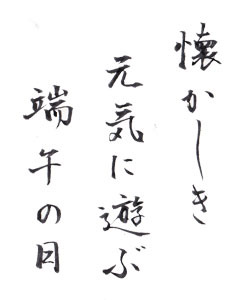 懐かしき
元気に遊ぶ
端午の日